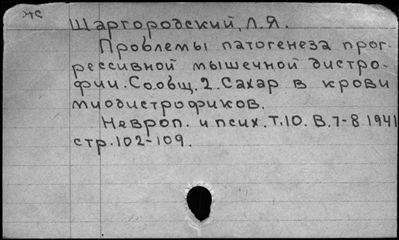 ЖС
Шаргородский, Л.Я.
Проблемы патогенеза прог-
рессивной мышечной дистро-
фии. Сообщ. 2. Сахар в крови
миодистрофиков.
Невроп. и псих. Т.10. В.7-8 1941
стр. 102-109.